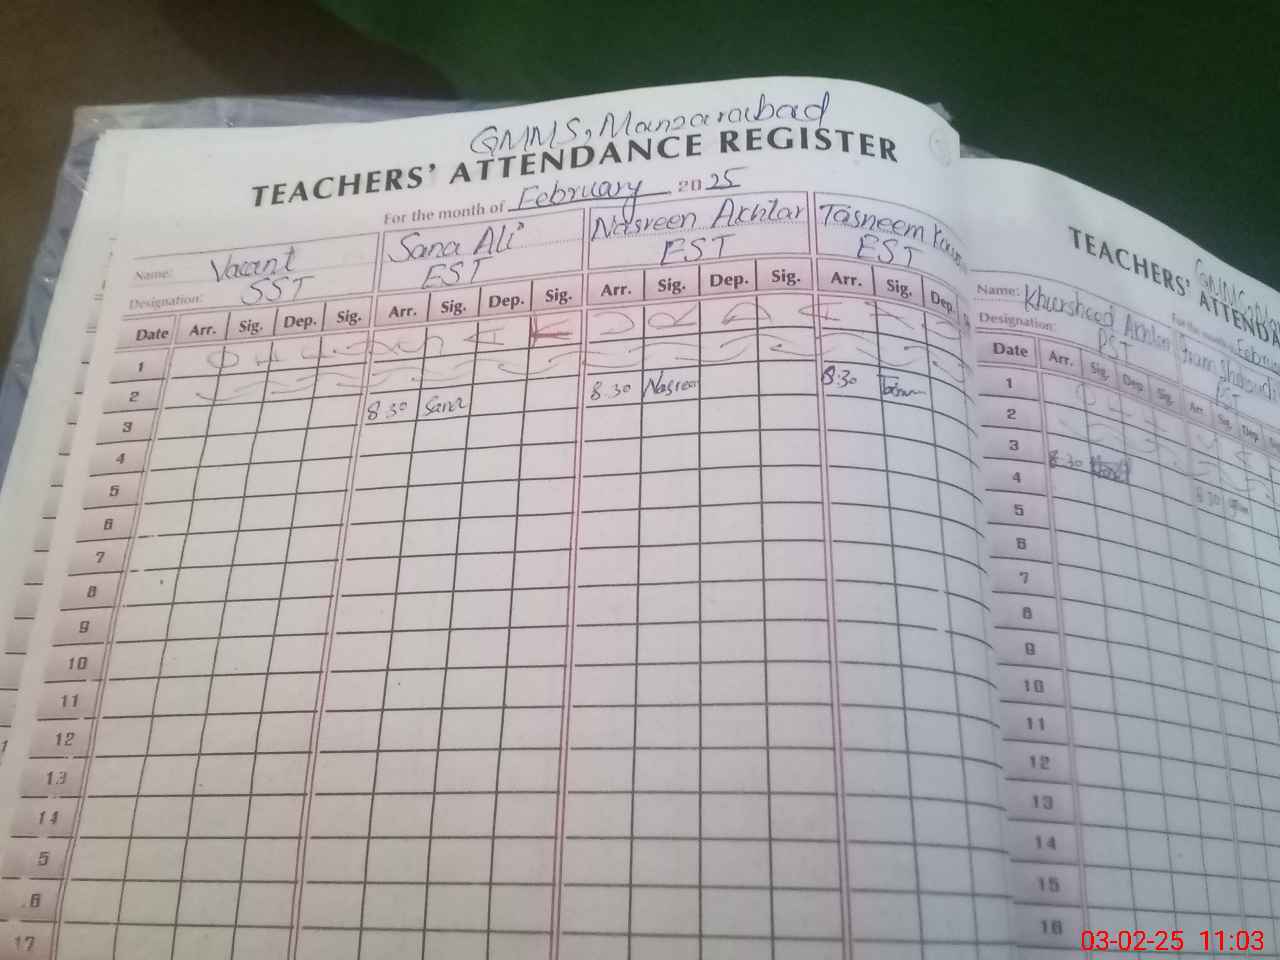 GMMS, Mansarabad
TEACHERS' ATTENDANCE REGISTER
For the month of February 2025
Name: Vacant Sana Ali Nasreen Akhtar Tasneem
Designation: SST EST EST EST
Date Arr. Sig. Dep. Sig. Arr. Sig. Dep. Sig. Arr. Sig. Dep. Sig. Arr. Sig. Dep.
1
2
3 8:30 Sana 8:30 Nasreen 8:30
4
5
6
7
8
9
10
11
12
13
14
5
6
17
TEACHERS' ATTENDA
Name: Khursheed Akhtar
Designation: PST
Date Arr. Sig. Dep. Sig. Arr. Sig. Dep.
1
2
3 8:30
4
5
6
7
8
9
10
11
12
13
14
15
16
03-02-25 11:03